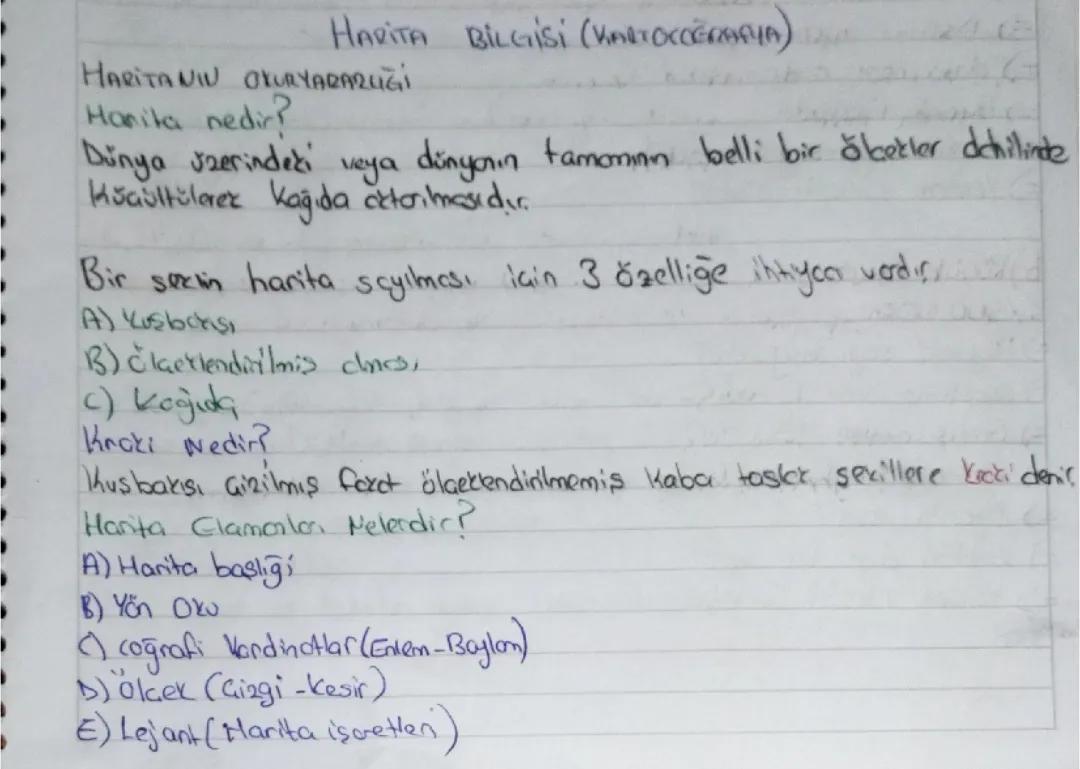 HARİTA BİLGİSİ (KARTOĞRAFYA)
HARİTANIN OKURYARARLIĞI
Harita nedir?
Dünya üzerindeki veya dünyanın tamamının belli bir ölçekler dahilinde
Küçültülerek kağıda aktarılmasıdır.
Bir şeklin harita sayılması için 3 özelliğe ihtiyacı vardır.
A) Kuşbakışı
B) Ölçeklendirilmiş olması
C) Kağıda
Kroki Nedir?
Kuşbakışı çizilmiş fakat ölçeklendirilmemiş kaba taslak şekillere kroki denir.
Harita Elamanları Nelerdir?
A) Harita başlığı
B) Yön Oku
C) coğrafi Kordinatlar (Enlem-Boylam)
D) Ölçek (Çizgi - Kesir)
E) Lejant (Harita işaretleri)